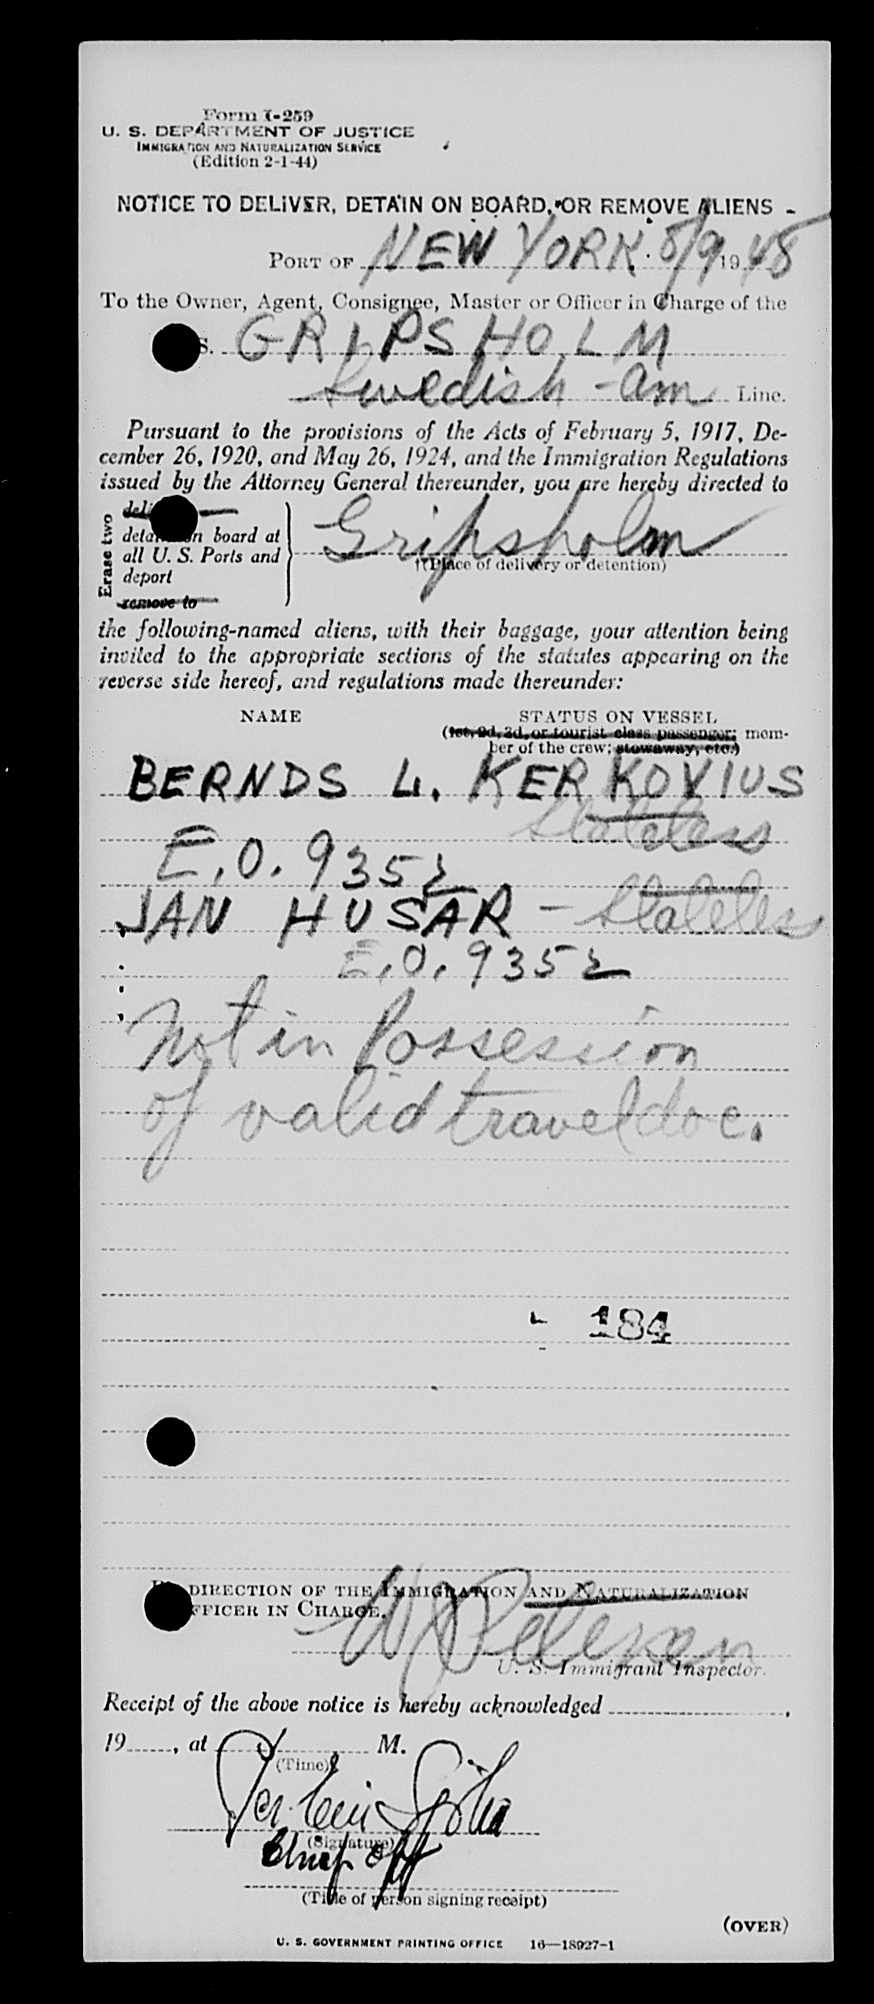 Form I-259
U. S. DEPARTMENT OF JUSTICE
IMMIGRATION AND NATURALIZATION SERVICE
(Edition 2-1-44)
NOTICE TO DELIVER, DETAIN ON BOARD, OR REMOVE ALIENS
PORT OF NEW YORK 5/9 1948
To the Owner, Agent, Consignee, Master or Officer in Charge of the
S. GRIPSHOLM
Swedish-am Line.
Pursuant to the provisions of the Acts of February 5, 1917, De-
cember 26, 1920, and May 26, 1924, and the Immigration Regulations
issued by the Attorney General thereunder, you are hereby directed to
Erase two
detain on board at
all U. S. Ports and
deport
remove to
Gripsholm
(Place of delivery or detention)
the following-named aliens, with their baggage, your attention being
invited to the appropriate sections of the statutes appearing on the
reverse side hereof, and regulations made thereunder:
NAME STATUS ON VESSEL
(1st, 2d, 3d, or tourist class passenger; mem-
ber of the crew; stowaway, etc.)
BERNDS L. KERKOVIUS
Stateless
E.O. 9352
JAN HUSAR - Stateless
E.O. 9352
Not in Possession
of valid travel doc.
184
DIRECTION OF THE IMMIGRATION AND NATURALIZATION
OFFICER IN CHARGE.
W Petersen
U. S. Immigrant Inspector.
Receipt of the above notice is hereby acknowledged
19 , at M.
(Time)
(Signature)
Chief Off
(Title of person signing receipt)
(OVER)
U. S. GOVERNMENT PRINTING OFFICE 16—18927-1